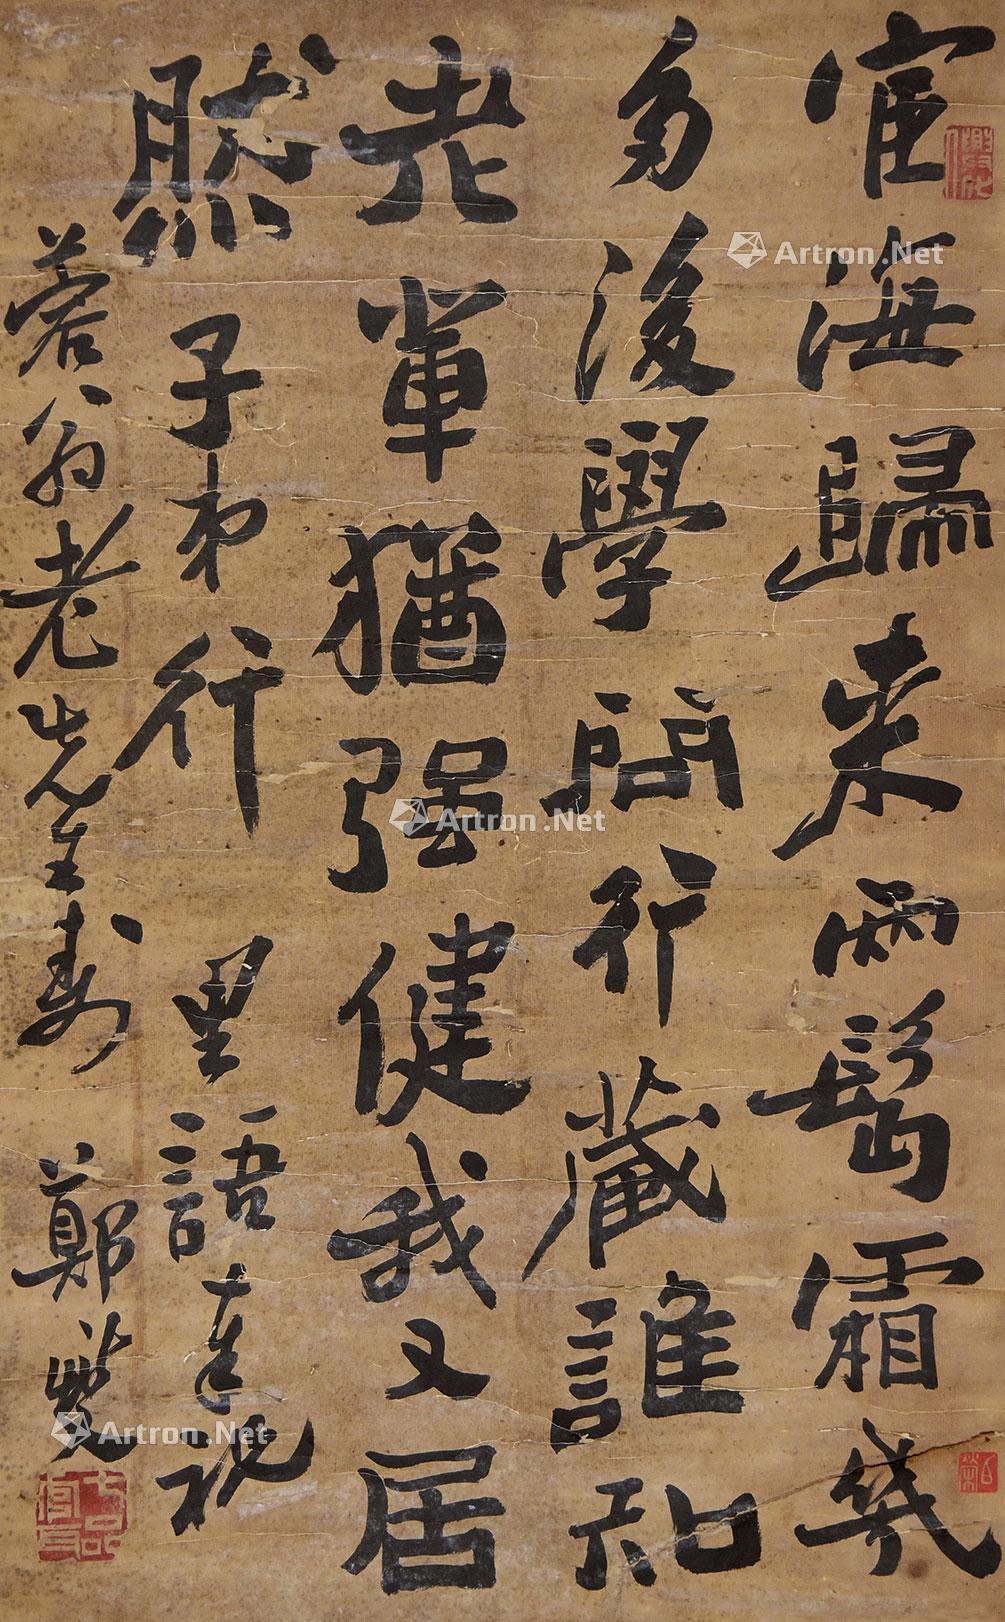 宦海歸来兩鬢霜幾
多後學問行藏誰知
老輩猶强健我又居
然子弟行 里語奉祝
蓉翁老先生壽 鄭燮
Artron.Net
Artron.Net
Artron.Net